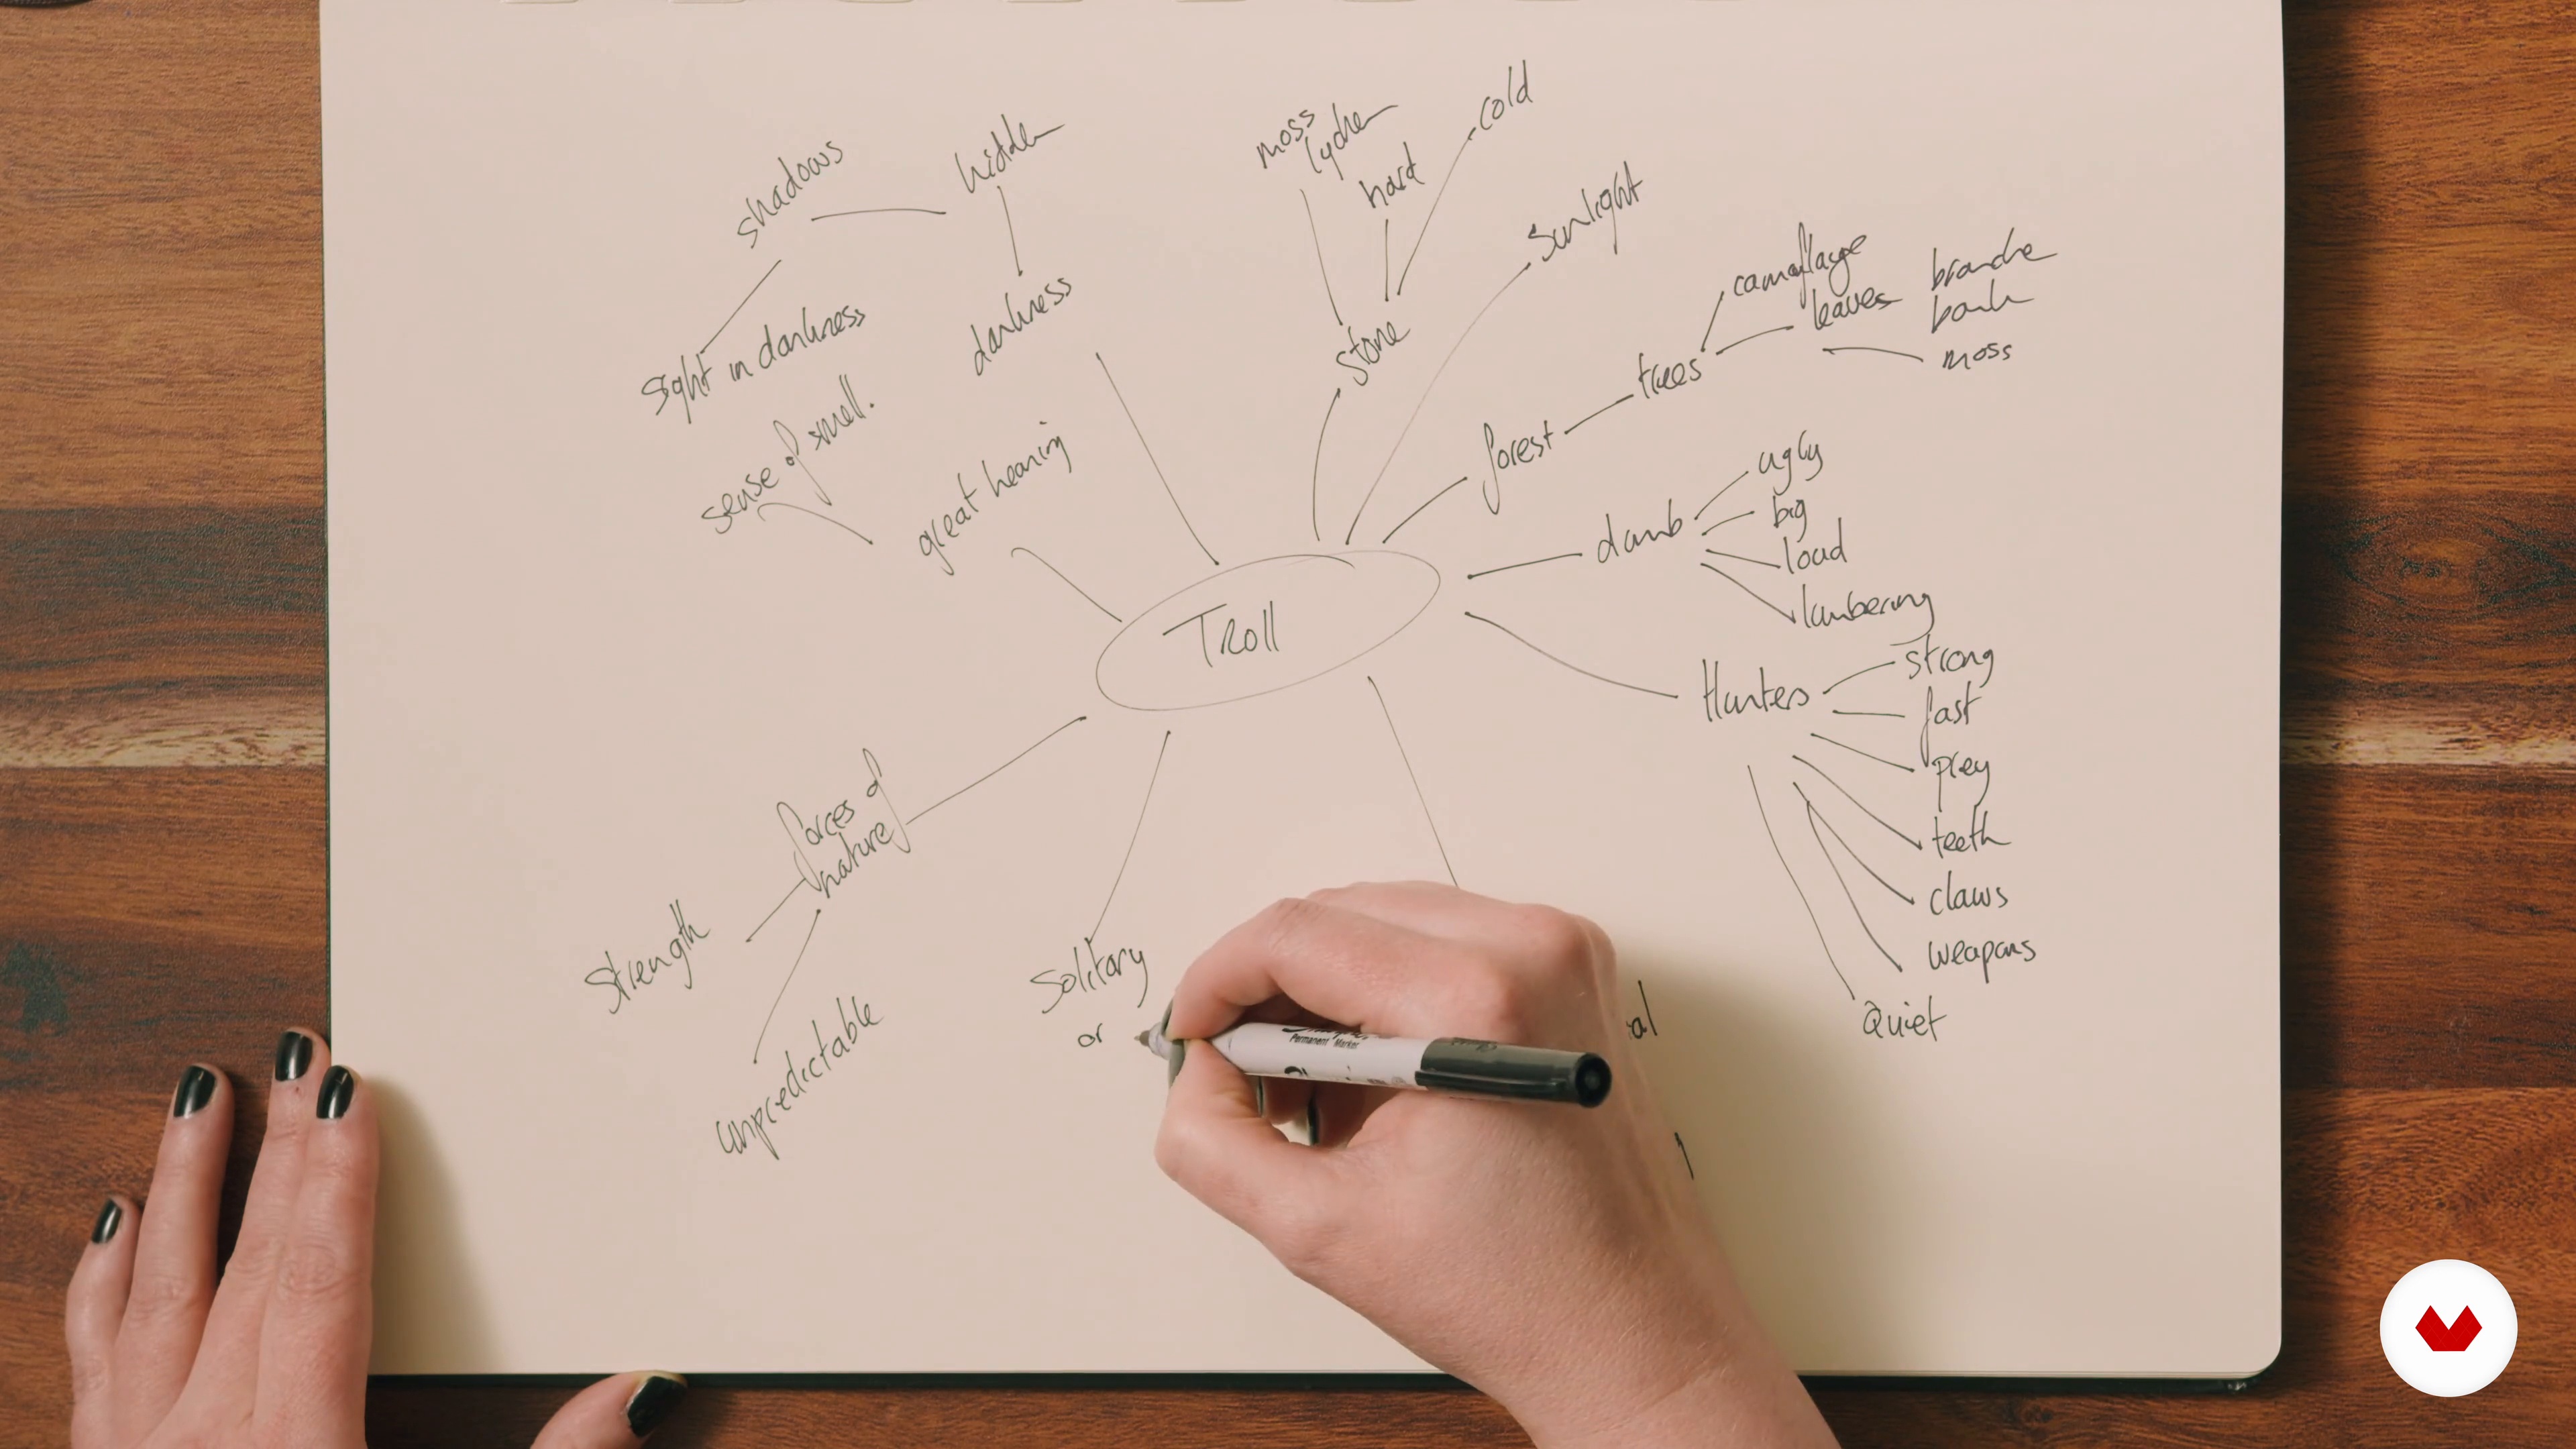 cold
moss
lychen
hard
hidden
shadows
Sunlight
camouflage
branche
leaves
bark
moss
darkness
stone
trees
sight in darkness
sense of smell.
great hearing
forest
ugly
dumb
big
loud
lumbering
Troll
strong
Hunters
fast
prey
forces of
nature
teeth
claws
strength
Solitary
weapons
or
Quiet
unpredictable
Permanent Marker